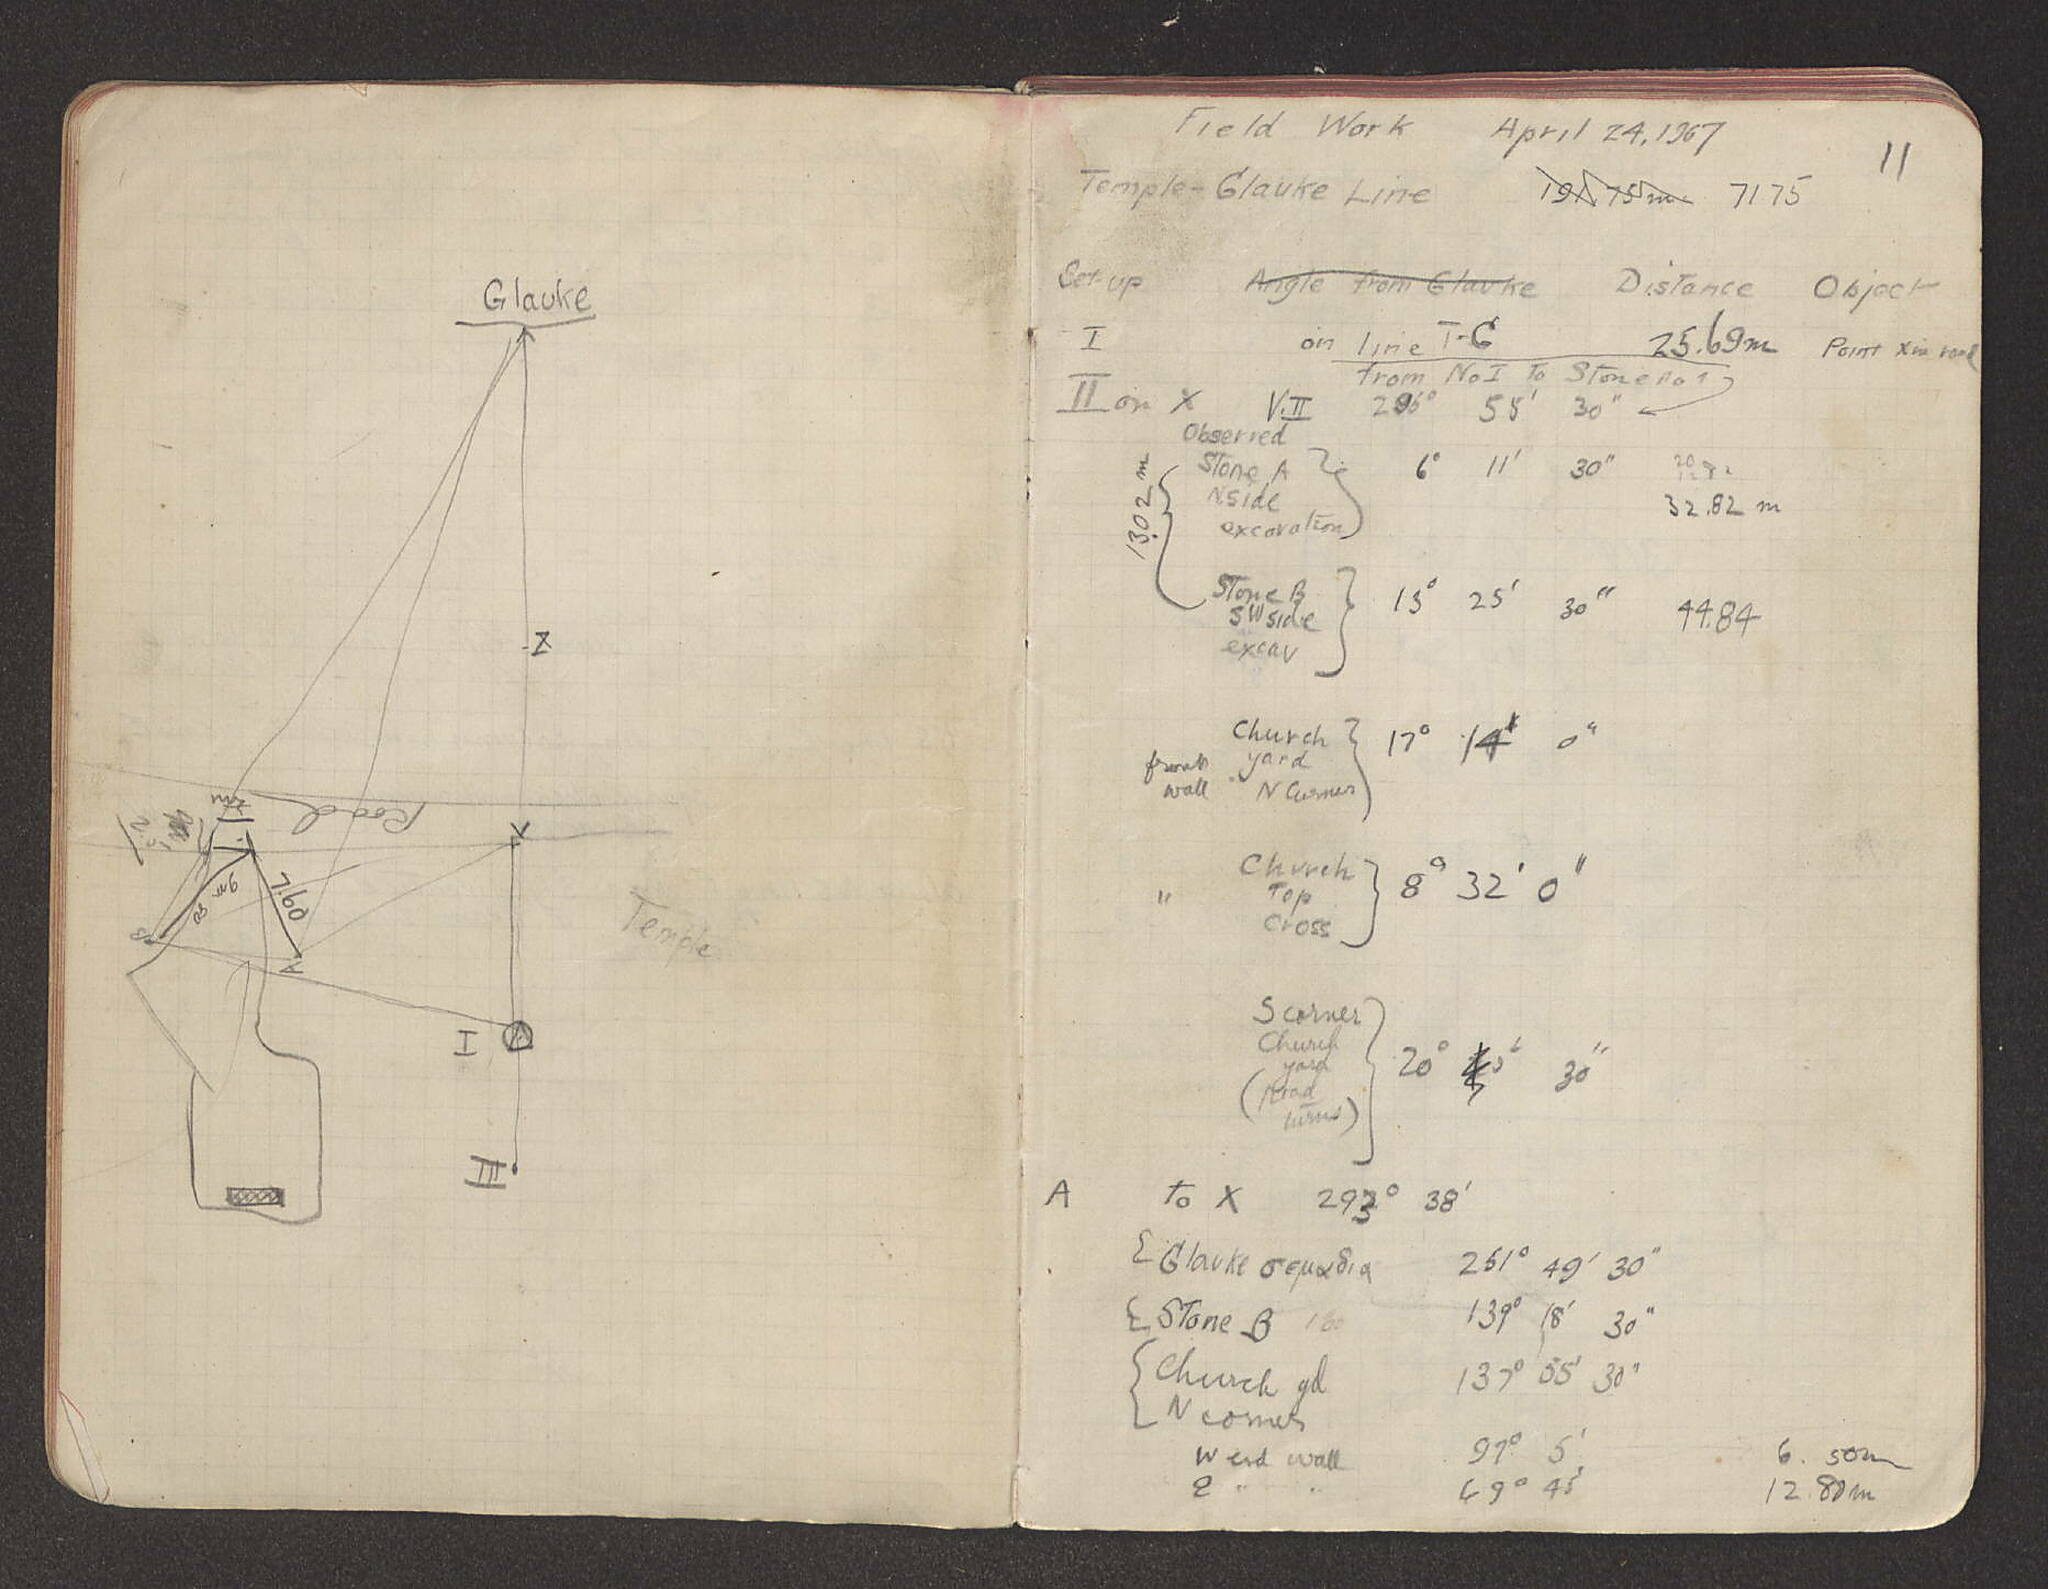 Glauke
X
Road
X
7.60
B
A
Temple
I
III
Field Work April 24, 1967
11
Temple-Glauke Line 7175
Set-up Angle from Glauke Distance Object
I on line T-G 25.69m Point X in road
from No I to Stone No 1
II on X V.II 55' 30"
Observed
Stone A 6° 11' 30"
N side 32.82 m
excavation
13.02 m
Stone B 13° 25' 30" 44.84
SW side
excav
Church 17° 14' 0"
yard
wall N Corner
" Church 8° 32' 0"
Top
Cross
S corner
Church 20° 30"
yard
(Road
turns)
A to X 293° 38'
Glauke σεμαδια 251° 49' 30"
Stone B 139° 18' 30"
Church yd 137° 55' 30"
N corner
W end wall 97° 5' 6.50m
E " " 69° 45' 12.80m